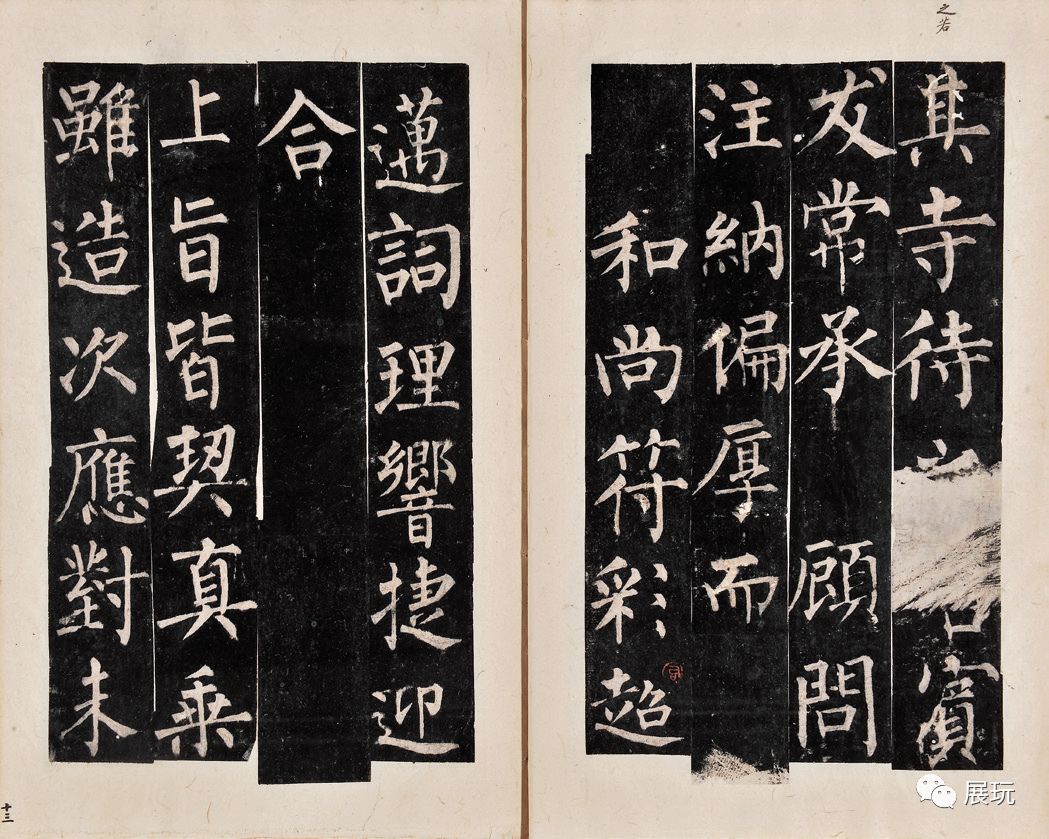 之若
其寺待賓
友常承顧問
注納偏厚而
和尚符彩超
邁詞理響捷迎
合
上旨皆契真乘
雖造次應對未
十三
展玩